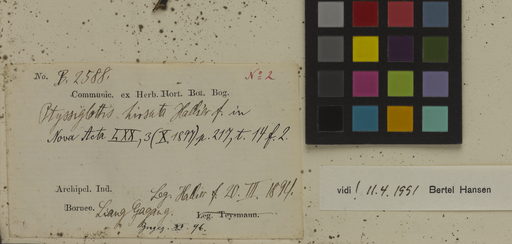 No. B. 2588. No 2
Communic. ex Herb. Hort. Bot. Bog.
Ptyssiglottis hirsuta Hallier f. in
Nova Acta LXX, 3 (X. 1897) p. 217, t. 14 f. 2.
Archipel. Ind. Leg. Hallier f. 20. III. 1894.
Borneo. Liang Gagang. Leg. Teysmann.
XI. 96.
vidi! 11.4.1951 Bertel Hansen